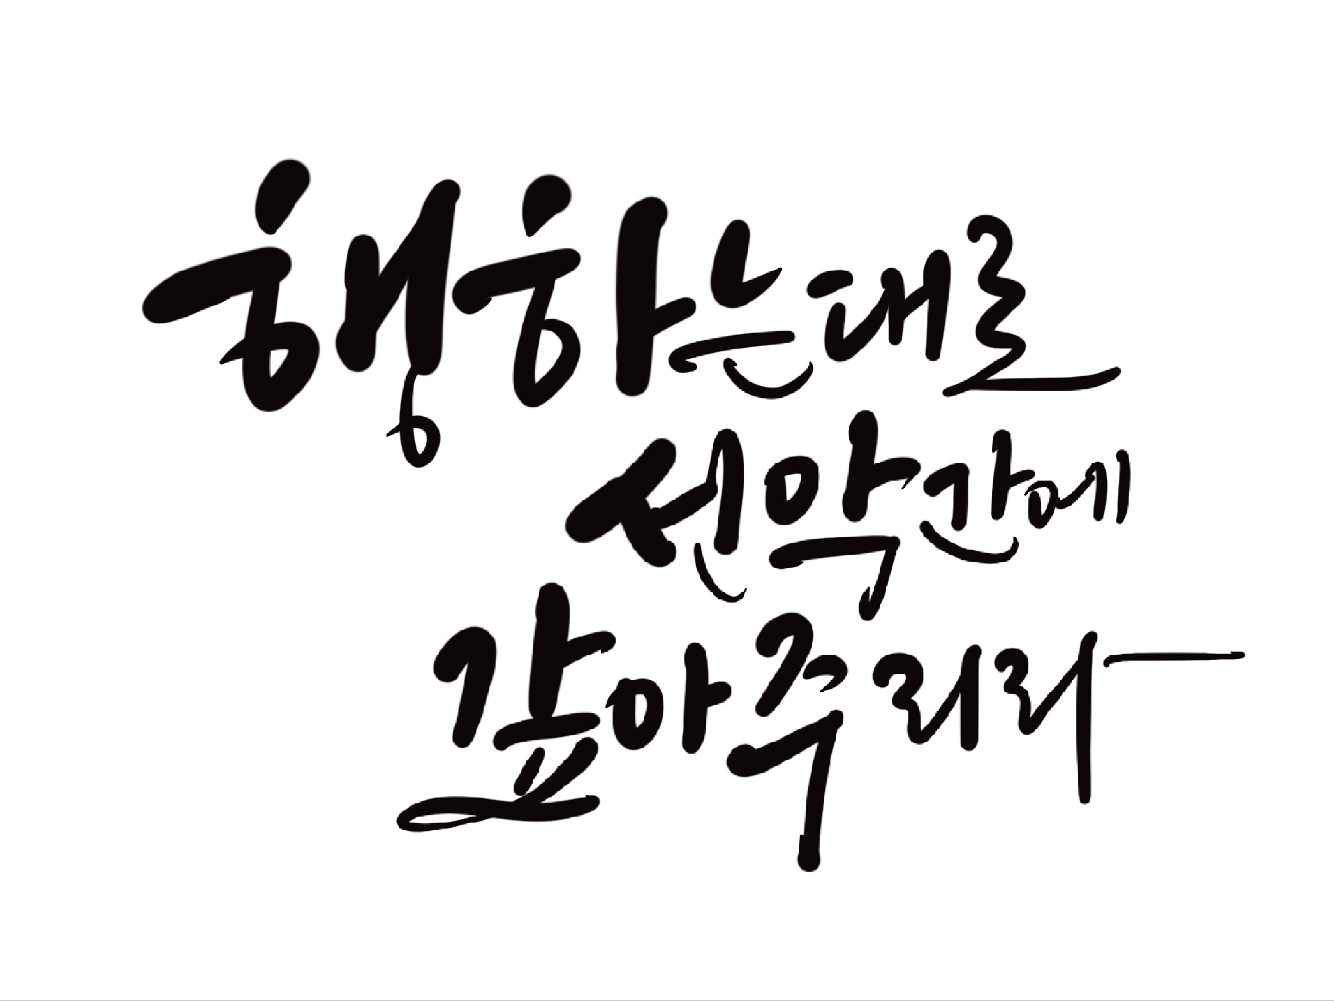 행하는대로
선악간에
갚아주리라